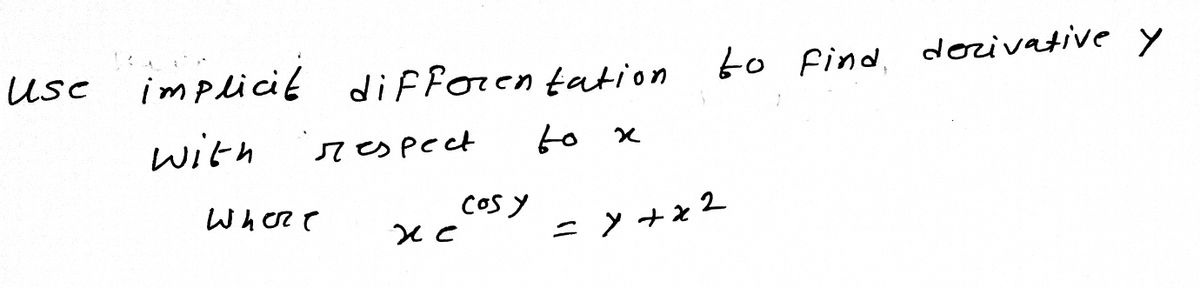 Use implicit differentation to find derivative y
with respect to x
where xe^cos y = y + x^2